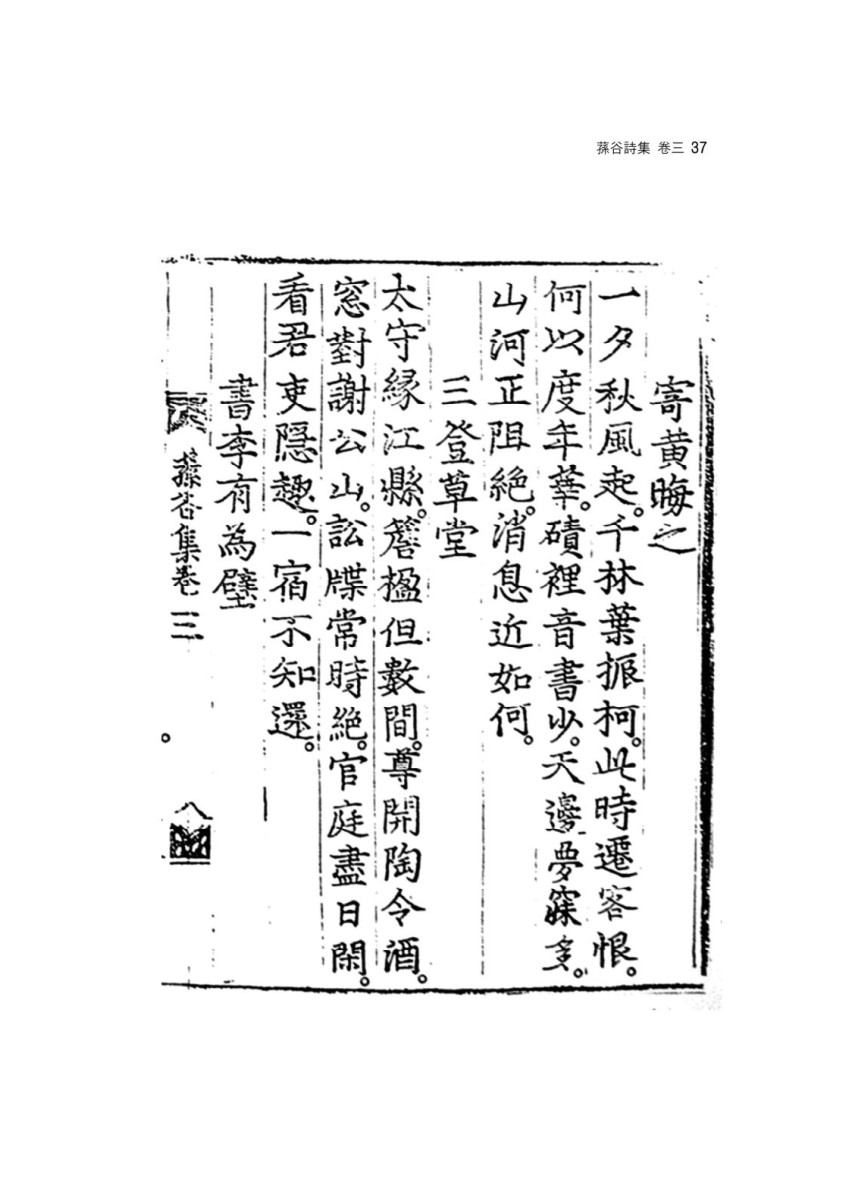 蓀谷詩集 卷三 37
寄黄晦之
一夕秋風起。千林葉振柯。此時遷客恨。
何以度年華。磧裡音書少。天邊夢寐多。
山河正阻絶。消息近如何。
三登草堂
太守縁江縣。簷楹但數間。尊開陶令酒。
窓對謝公山。訟牒常時絶。官庭盡日閑。
看君吏隱趣。一宿不知還。
書李有為壁
蓀谷集卷三
八